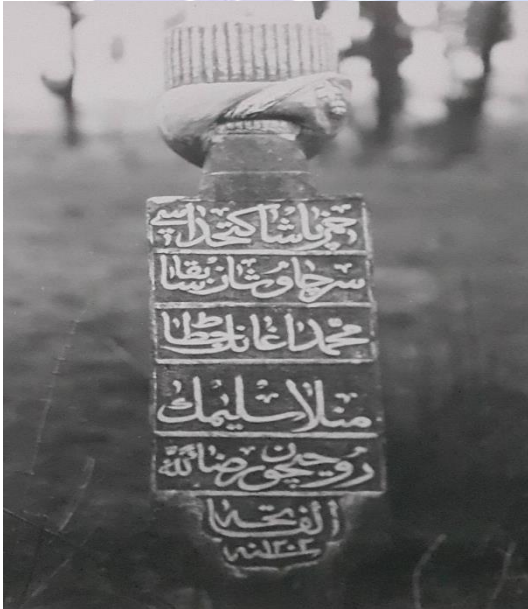 پاشا كتخداسى
سرچاوشان سابقا
محمد اغانك
منلا سليمك
روحيچون رضاء لله
الفاتحه
سنه ١٢٠٢